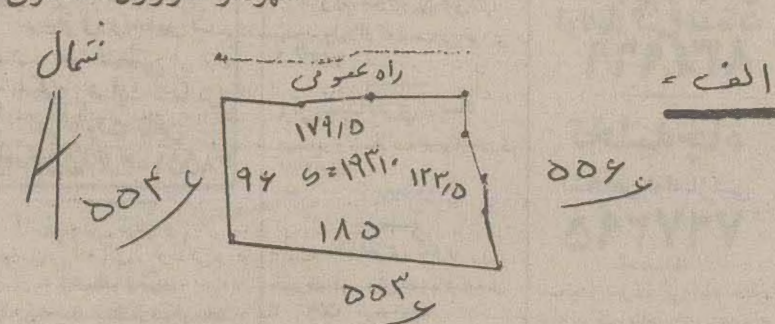 شمال
الف =
راه عمومی
۱۷۹/۵
۹۶ S=۱۹۳۱۰ ۱۲۳/۵
۱۸۵
۵۵۴
۵۵۶
۵۵۳